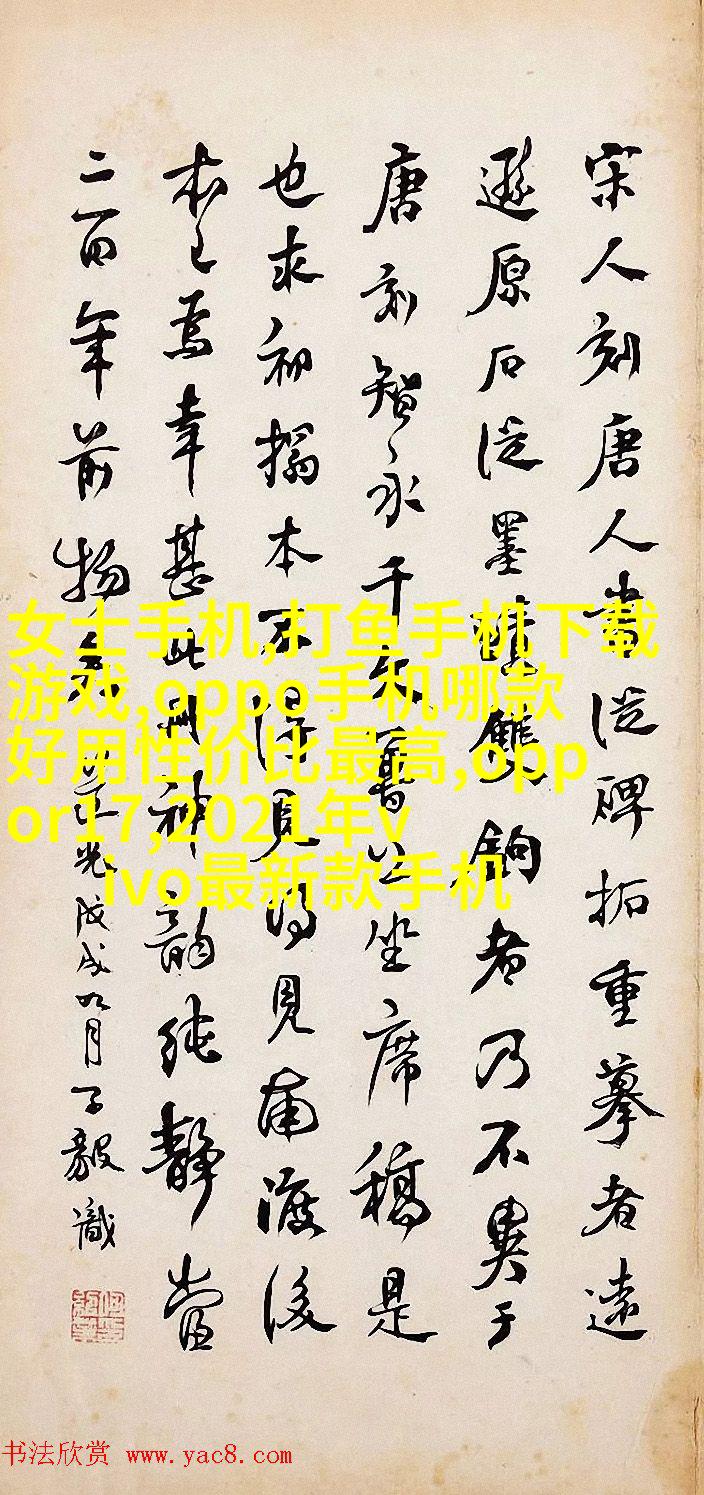 宋人刻唐人書從碑拓重摹者遠
遜原石從墨蹟雙鉤者乃不異于
唐刻智永千文魯公坐席稿是
也求初搨本不得見得見南渡後
本已為幸甚此冊神韻純靜當
二百年前物矣 道光戊戌九月子毅識
女士手机,打鱼手机下载
游戏,oppo手机哪款
好用性价比最高,opp
or17,2021年v
ivo最新款手机
书法欣赏 www.yac8.com